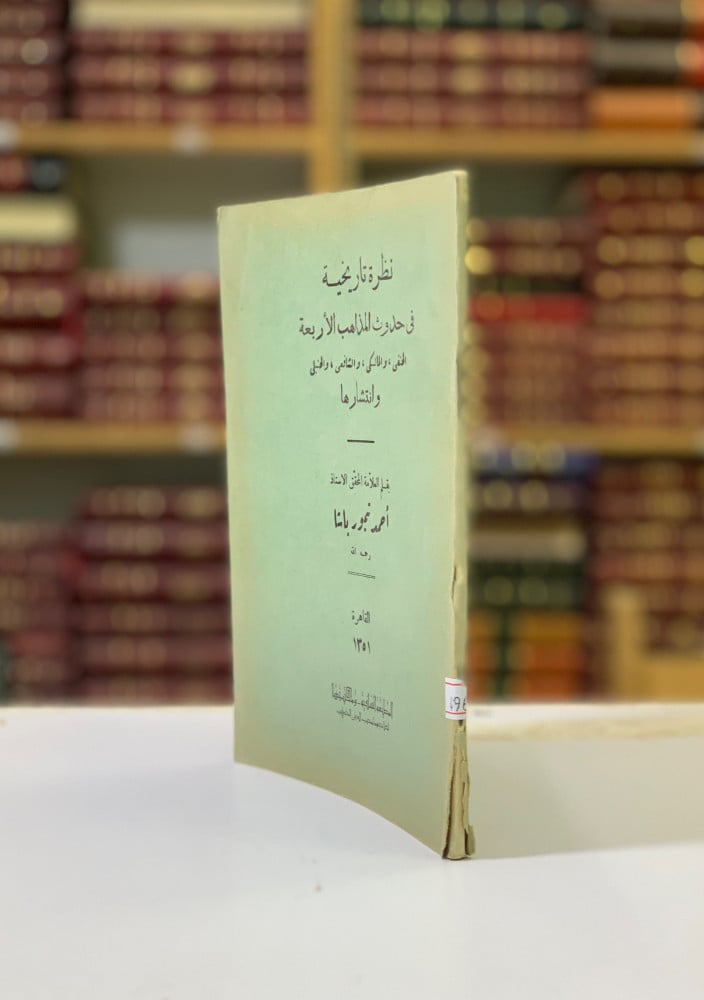 نظرة تاريخية
فى حدوث المذاهب الأربعة
الحنفى ، والمالكى ، والشافعى ، والحنبلى
وانتشارها
بقلم العلامة المحقق الاستاذ
أحمد تيمور باشا
رحمه الله
القاهرة
١٣٥١
المطبعة السلفية - ومكتبتها